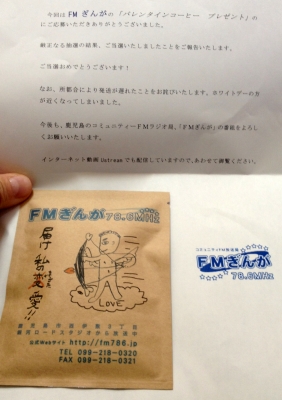 今回は FMぎんがの「バレンタインコーヒー プレゼント」の
にご応募いただきありがとうございました。
厳正なる抽選の結果、ご当選いたしましたことをご報告いたします。
ご当選おめでとうございます！
なお、諸都合により発送が遅れたことをお詫びいたします。ホワイトデーの方
が近くなってしまいました。
今後も、鹿児島のコミュニティーFMラジオ局、「FMぎんが」の番組をよろし
くお願いいたします。
インターネット動画Ustreamでも配信していますので、あわせて御覧ください。
FMぎんが 78.6MHz
届け
私の
愛!!
LOVE
公式Webサイト http://fm786.jp
TEL 099-218-0320
FAX 099-218-0321
コミュニティFM放送局
FMぎんが
78.6MHz